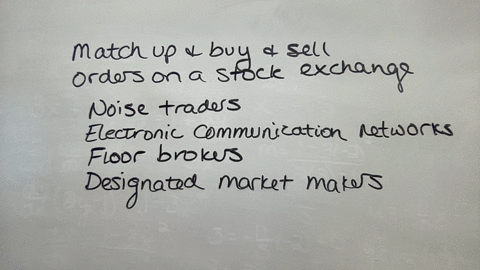 Match up & buy & sell
orders on a stock exchange
Noise traders
Electronic communication networks
Floor brokers
Designated market makers